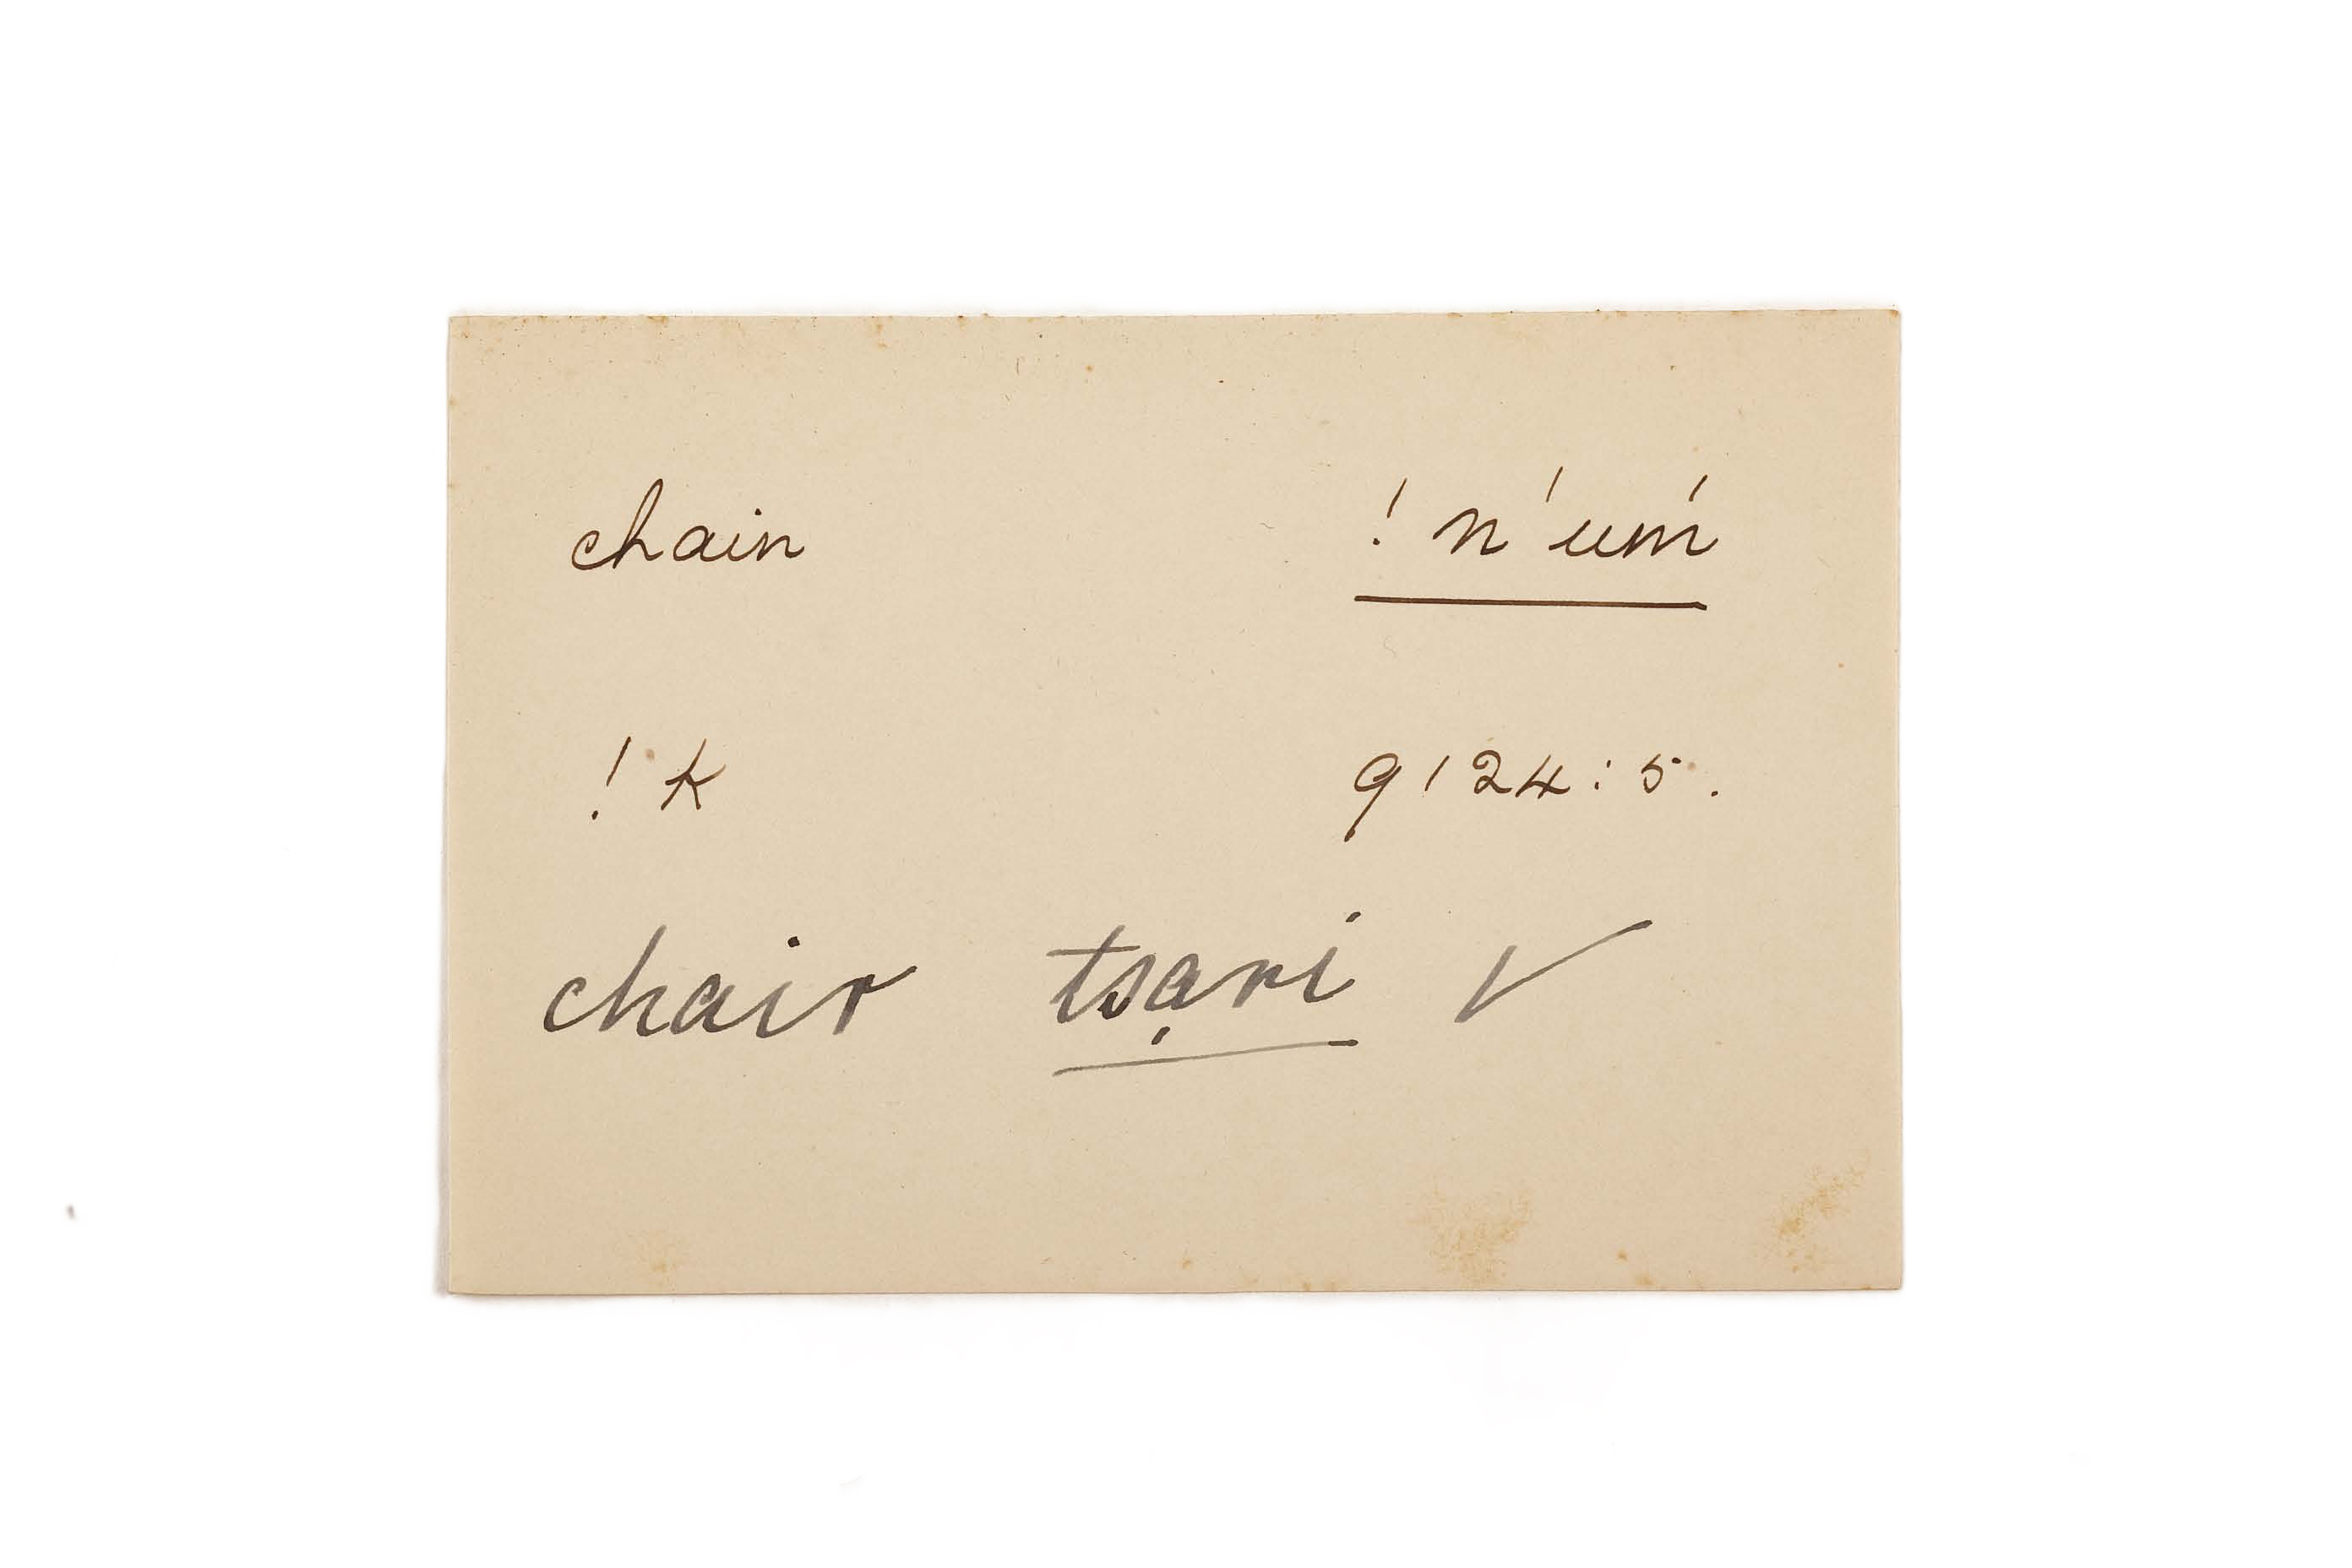 chain ! n'uḿ
! k 9124:5.
chair tsạri ✓